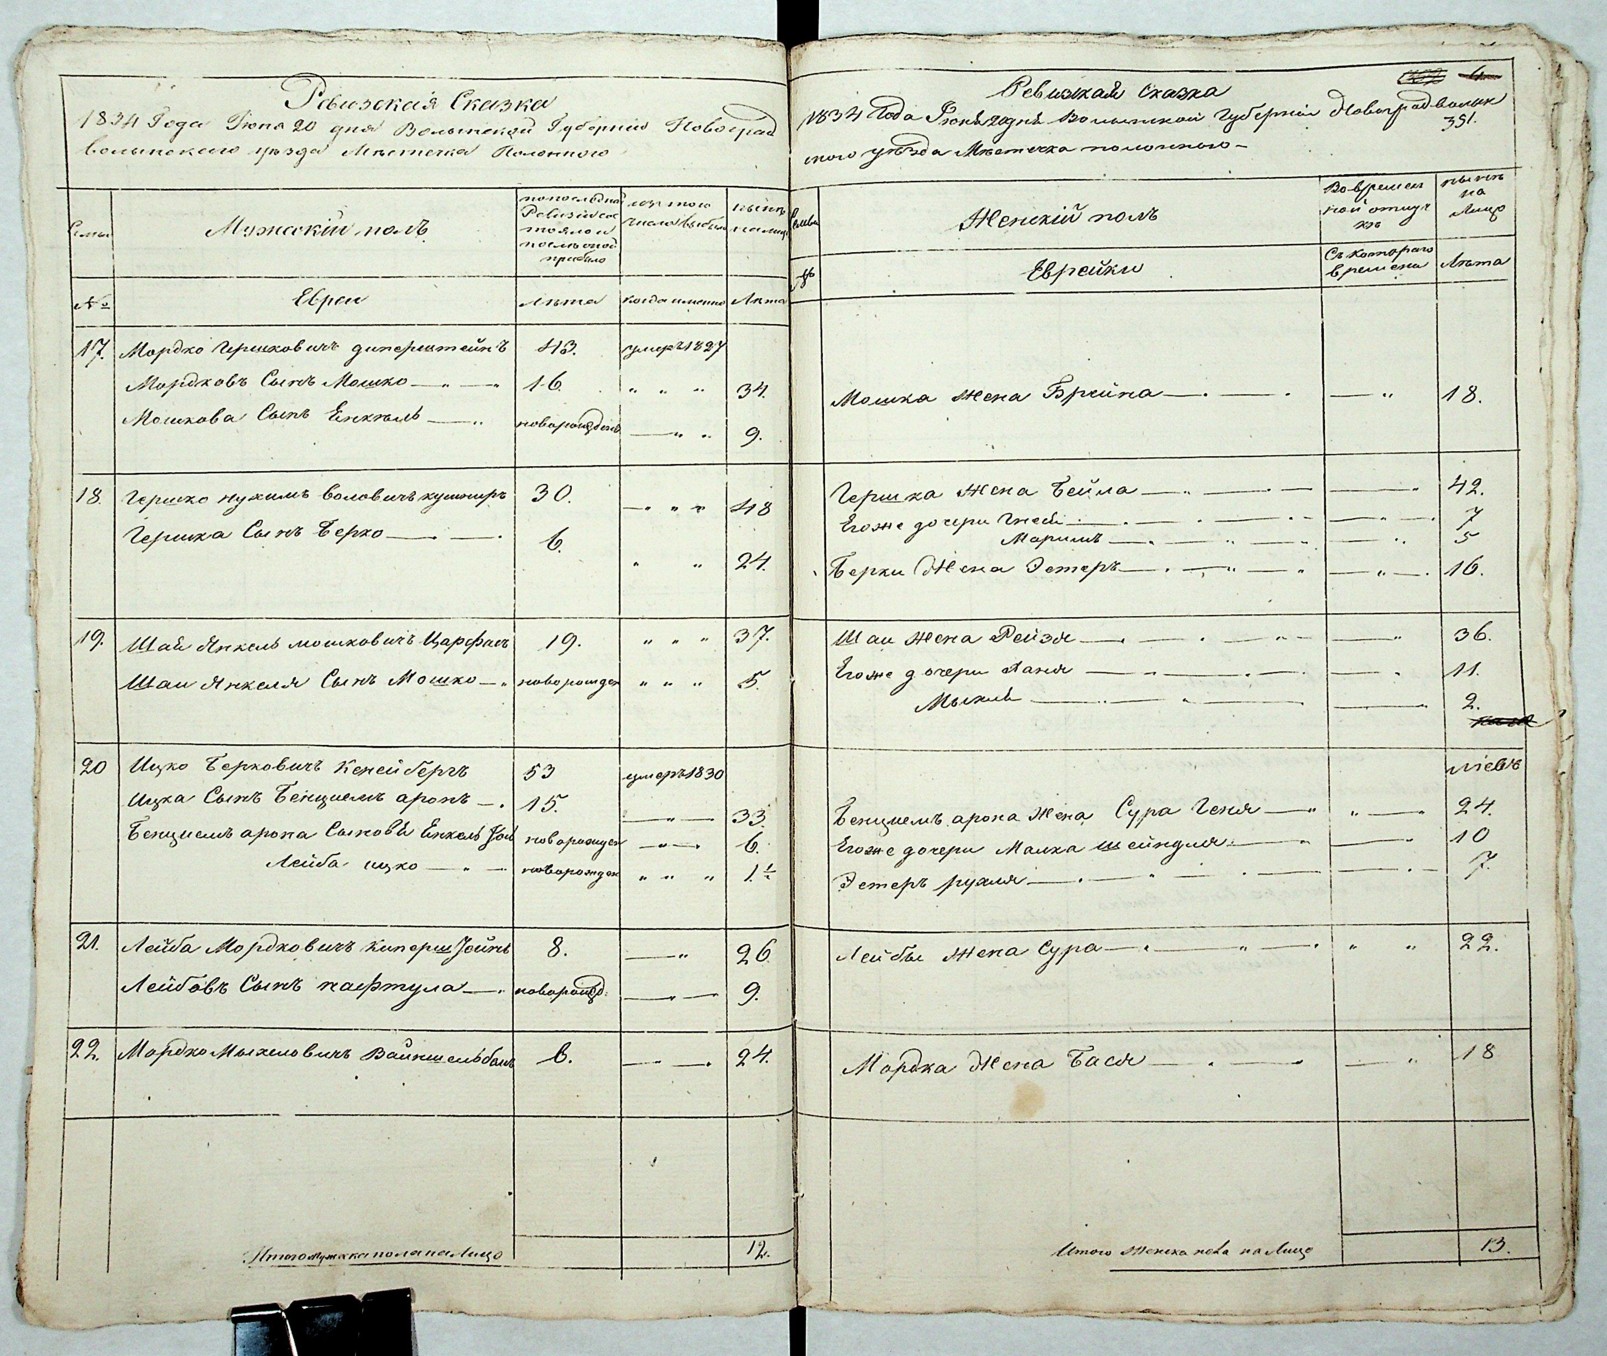 Ревизская Сказка
1834 Года Июня 20 дня Волынской Губернии Новоград
волынского уѣзда Мѣстечка Полонного
Семьи
Мужскій полъ
по последней
Ревизіи со
стояло и
послѣ оной
прибыло
изъ того
числа выбыло
нынѣ
на лицо
№
Евреи
Лѣта
когда именно
Лѣта
17.
Мордко Гершковичъ диперштейнъ
43.
умеръ 1827
Мордковъ Сынъ Мошко
16
34.
Мошкова Сынъ Енкель
новорожден
9.
18.
Гершко нухимъ воловичъ кушниръ
30.
48
Гершка Сынъ Берко
6.
24.
19.
Шая Янкель мошковичъ Царфисъ
19.
37.
Шаи Янкеля Сынъ Мошко
новорожден
5.
20
Ицко Берковичъ Кенейбергъ
53
умеръ 1830
Ицка Сынъ Бенциемъ аронъ
15.
33.
Бенциемъ арона Сыновья Енкель Іос
новорожден
6.
Лейба ицко
новорожден
1½
21.
Лейба Мордковичъ Киперштейнъ
8.
26
Лейбовъ Сынъ нафтула
новорожд:
9.
22.
Мордко Мыхеловичъ Вайншельбаумъ
6.
24.
Итого мужска пола на Лицо
12.
Ревизкая Сказка
1834 Года Июня 20 дня Волынской Губерніи Новоградволын
351.
ского уѣзда Мѣстечка полонного
Семьи
Женскій полъ
Во времен
ной отлуч
кѣ
нынѣ
на
Лицо
№
Еврейки
Съ котораго
времени
Лѣта
Мошка Жена Брейна
18.
Гершка Жена Бейла
42.
Егоже дочери Гнеся
7
Маримъ
5
Берки Жена Эстеръ
16.
Шаи Жена Рейзя
36.
Егоже дочери Ханя
11.
Мыхля
2.
Бенциемъ арона Жена Сура Геня
24.
Егоже дочери Малка шейндля
10
Эстеръ рухля
7.
Лейбы Жена Сура
22.
Мордка Жена Бася
18
Итого женска пола на Лицо
13.